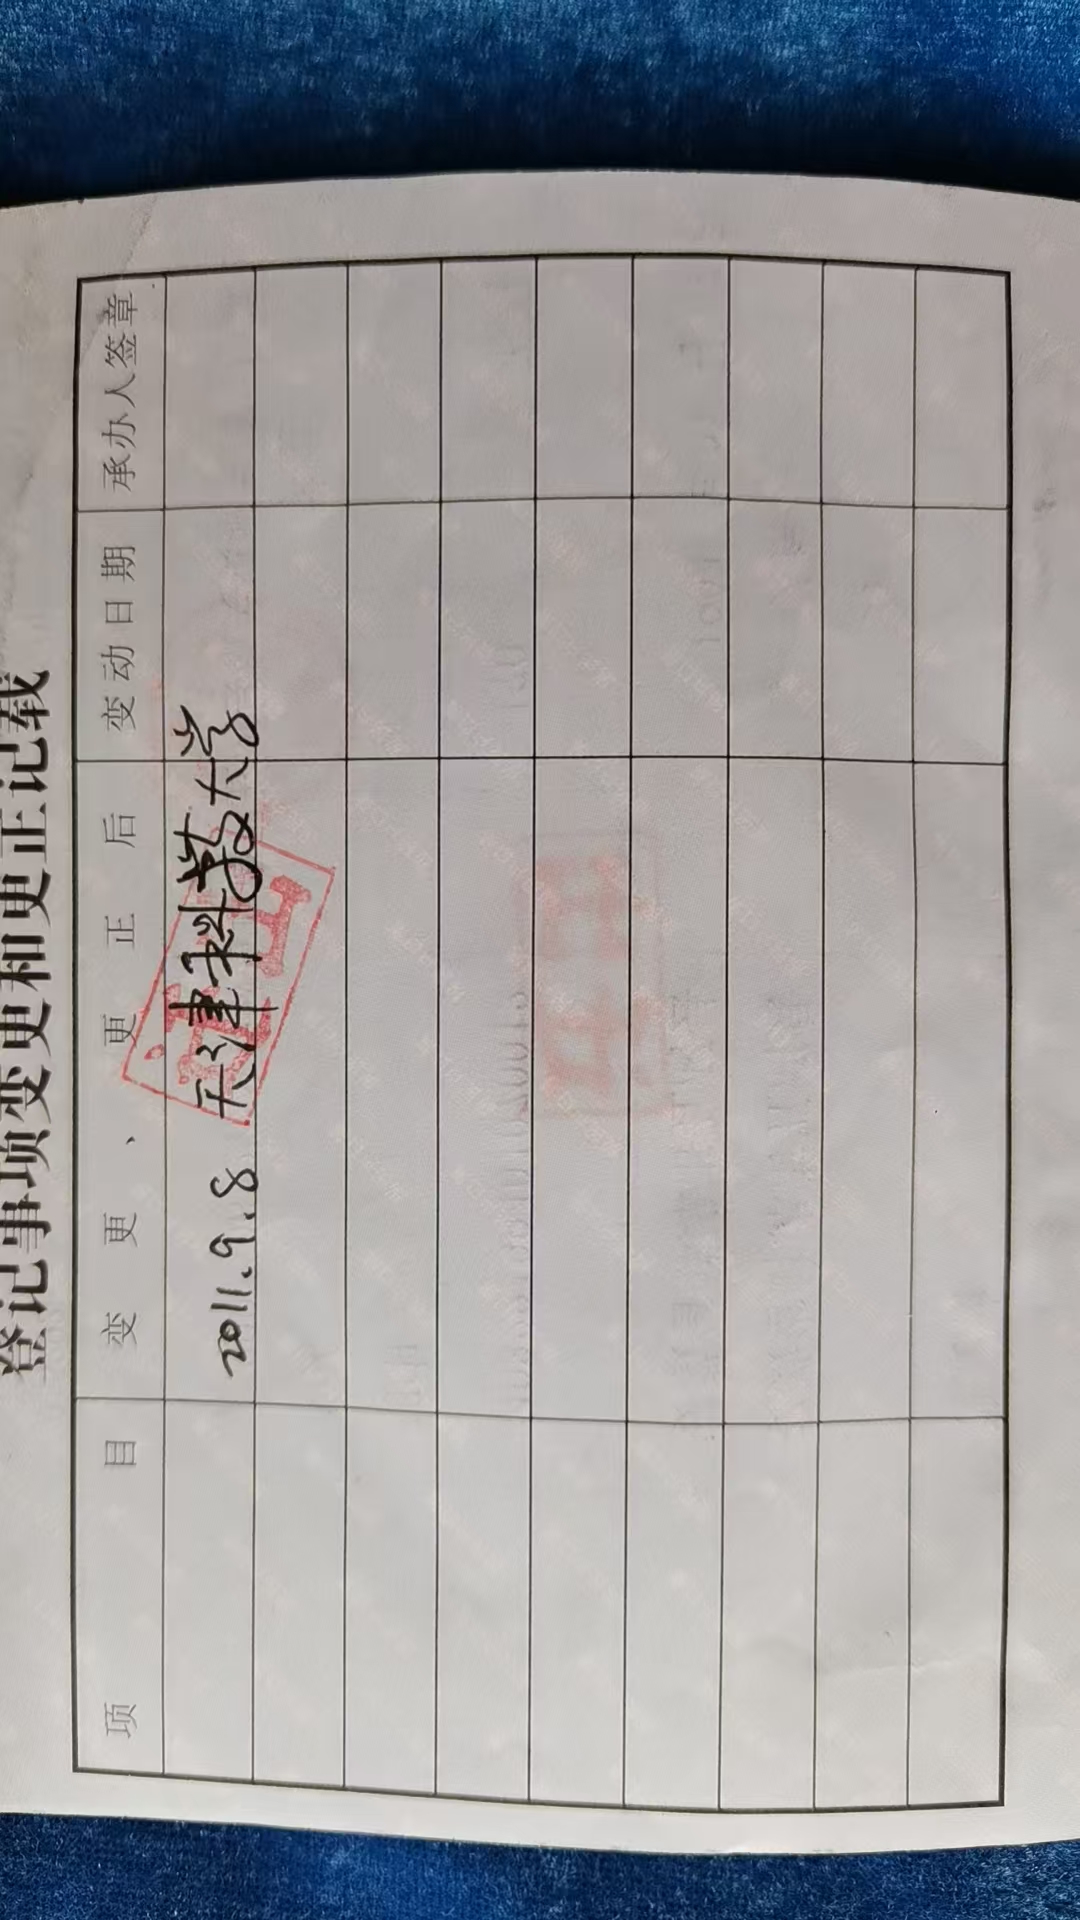 登记事项变更和更正记载
项 目 变 更 、 更 正 后 变 动 日 期 承办人签章
2011.9.8 天津科技大学
迁